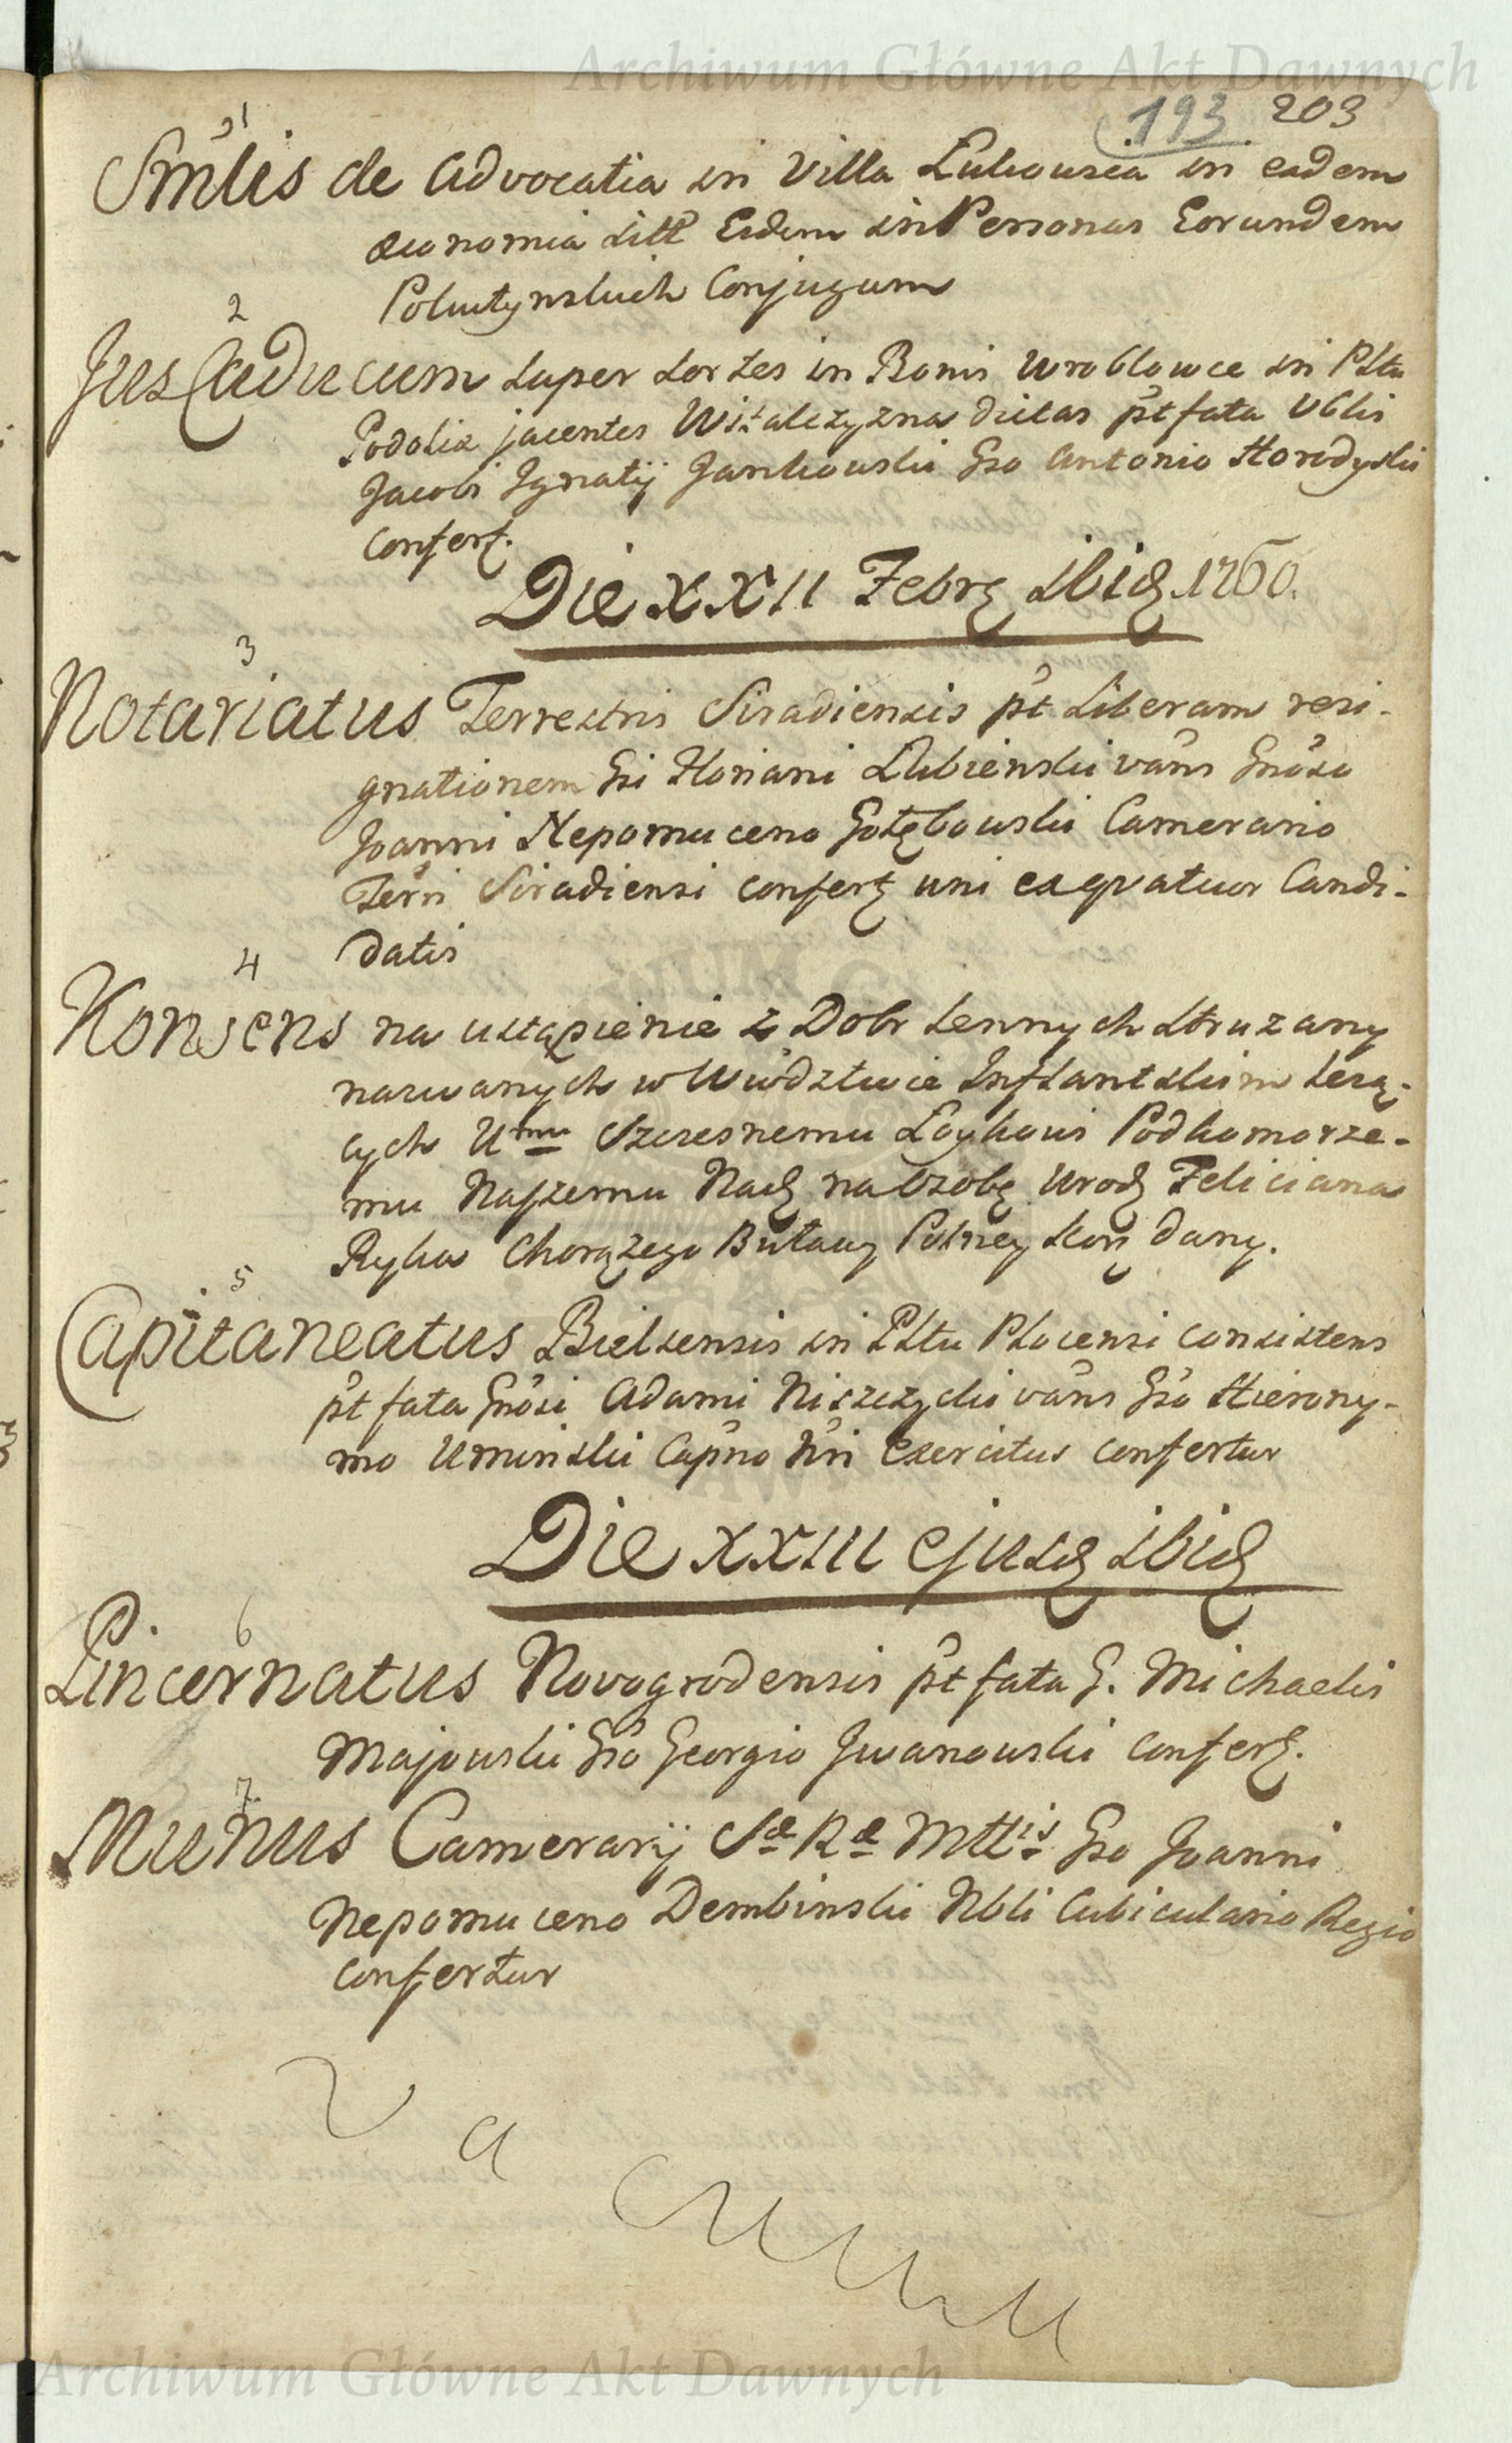 Archiwum Główne Akt Dawnych
193 203
1
Smlis de Advocatia in Villa Lukowica in eadem
Œconomia sitt Eidem in Personas Eorundem
Conjugum
2
Jus Caducum super sortes in Bonis Wroblowce in Pltu
Podoliæ jacentes Witalczyzna dictas pt fata Nblis
Jacobi Ignatij Jankowski Gso Antonio Horodyski
Confert.
Die XXII Febr ibid 1760.
3
Notariatus Terrestris Siradiensis pt Liberam resi-
gnationem Gsi Floriani Lubienski vans Gnoso
Joanni Nepomuceno Gołębowski Camerario
Terri Siradiensi confert uni ex qvatuor Candi-
datis
4
Konsens na ustąpienie z Dobr Lennych Struzany
nazwanych w Wwodztwie Inflantskim leżą-
cych Urmu Szczesnemu Łoykowi Podkomorze-
mu Naszemu Nad na Osobę Urod Feliciana
Ryka Chorążego Buławy Polney Kor dany.
5
Capitaneatus Bielsensis in Pltu Plocensi consistens
pt fata Gnosi Adami Niszczycki vans Gso Hierony-
mo Uminski Capno Nri Exercitus confertur
Die XXIII ejusd ibid
6
Pincernatus Novogrodensis pt fata G. Michaelis
Majowski Gso Georgio Jwanowski confert.
7
Munus Camerarij Sæ Ræ Mttis Gso Joanni
Nepomuceno Dembinski Nbli Cubiculario Regio
confertur
Archiwum Główne Akt Dawnych